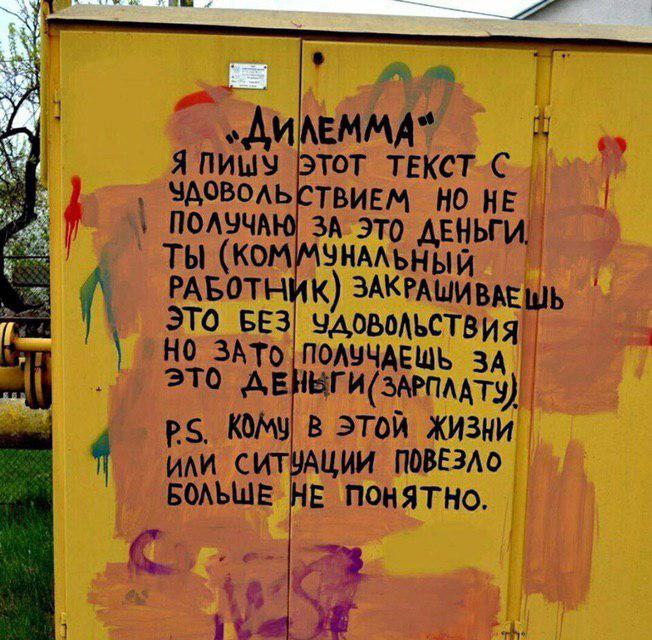 „ДИЛЕММА“
Я ПИШУ ЭТОТ ТЕКСТ С
УДОВОЛЬСТВИЕМ НО НЕ
ПОЛУЧАЮ ЗА ЭТО ДЕНЬГИ.
ТЫ (КОММУНАЛЬНЫЙ
РАБОТНИК) ЗАКРАШИВАЕШЬ
ЭТО БЕЗ УДОВОЛЬСТВИЯ
НО ЗА ТО ПОЛУЧАЕШЬ ЗА
ЭТО ДЕНЬГИ(ЗАРПЛАТУ).
P.S. КОМУ В ЭТОЙ ЖИЗНИ
ИЛИ СИТУАЦИИ ПОВЕЗЛО
БОЛЬШЕ НЕ ПОНЯТНО.